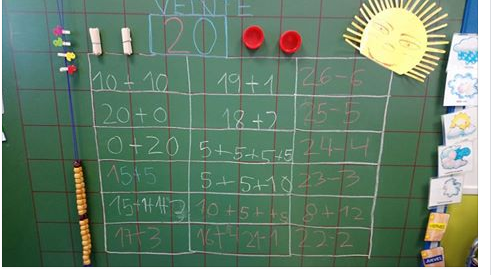 VEINTE
20
10+10 19+1 26-6
20+0 18+2 25-5
0+20 5+5+5+5 24-4
15+5 5+5+10 23-3
15+1+1+3 10+5++5 8+12
17+3 16+4 21-1 22-2
JUEVES